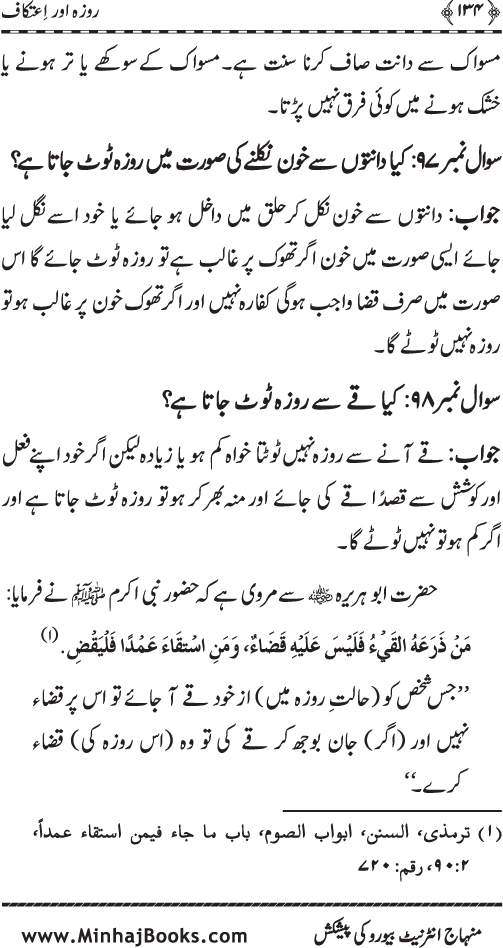 ﴿۱۳۴﴾ روزہ اور اِعتکاف
مسواک سے دانت صاف کرنا سنت ہے۔ مسواک کے سوکھے یا تر ہونے یا
خشک ہونے میں کوئی فرق نہیں پڑتا۔
سوال نمبر ۹۷: کیا دانتوں سے خون نکلنے کی صورت میں روزہ ٹوٹ جاتا ہے؟
جواب: دانتوں سے خون نکل کر حلق میں داخل ہو جائے یا خود اسے نگل لیا
جائے ایسی صورت میں خون اگر تھوک پر غالب ہے تو روزہ ٹوٹ جائے گا اس
صورت میں صرف قضا واجب ہوگی کفارہ نہیں اور اگر تھوک خون پر غالب ہو تو
روزہ نہیں ٹوٹے گا۔
سوال نمبر ۹۸: کیا قے سے روزہ ٹوٹ جاتا ہے؟
جواب: قے آنے سے روزہ نہیں ٹوٹتا خواہ کم ہو یا زیادہ لیکن اگر خود اپنے فعل
اور کوشش سے قصدًا قے کی جائے اور منہ بھر کر ہو تو روزہ ٹوٹ جاتا ہے اور
اگر کم ہو تو نہیں ٹوٹے گا۔
حضرت ابو ہریرہ رضی اللہ عنہ سے مروی ہے کہ حضور نبی اکرم ﷺ نے فرمایا:
مَنْ ذَرَعَهُ القَيْءُ فَلَيْسَ عَلَيْهِ قَضَاءٌ، وَمَنِ اسْتَقَاءَ عَمْدًا فَلْيَقْضِ. (۱)
’’جس شخص کو (حالتِ روزہ میں) از خود قے آ جائے تو اس پر قضاء
نہیں اور (اگر) جان بوجھ کر قے کی تو وہ (اس روزہ کی) قضاء
کرے۔‘‘
(۱) ترمذی، السنن، ابواب الصوم، باب ما جاء فیمن استقاء عمداً،
۲:۹۰، رقم: ۷۲۰
منہاج انٹرنیٹ بیورو کی پیشکش www.MinhajBooks.com